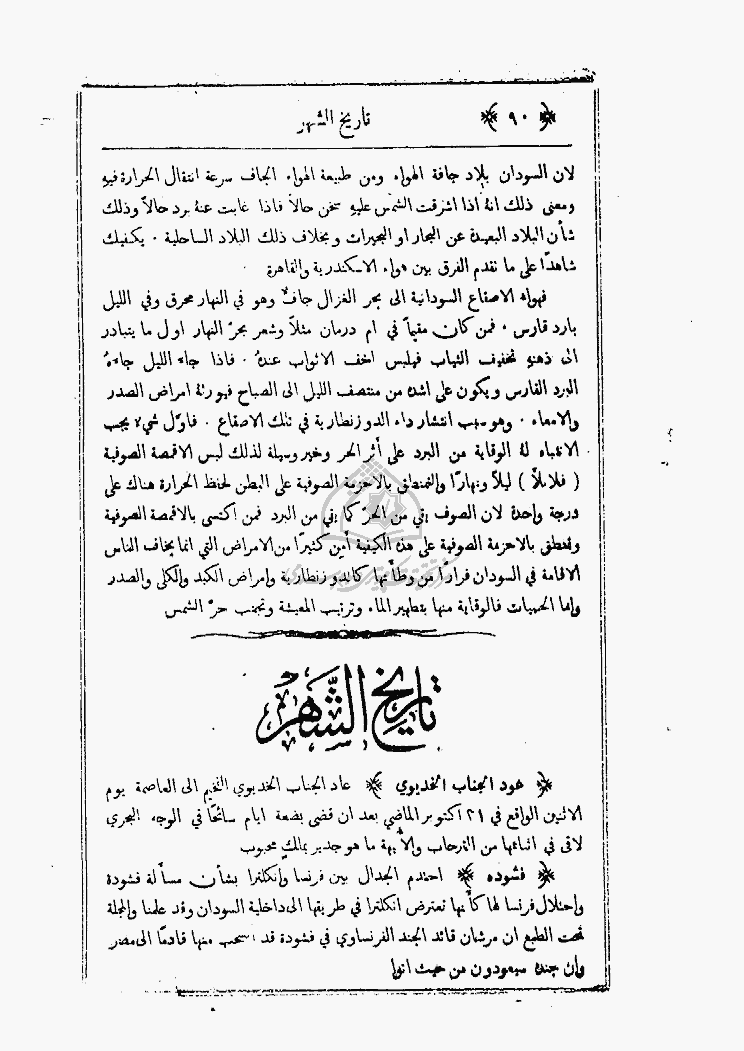 ﴿ ٩٠ ﴾ تاريخ الشهر
لان السودان بلاد جافة الهواء ومن طبيعة الهواء الجاف سرعة انتقال الحرارة فيه
ومعنى ذلك انهُ اذا اشرقت الشمس عليهِ سخن حالاً فاذا غابت عنهُ برد حالاً وذلك
شأن البلاد البعيدة عن البحار او البحيرات وبخلاف ذلك البلاد الساحلية . يكفيك
شاهدًا على ما تقدم الفرق بين هواء الاسكندرية والقاهرة
فهواء الاصقاع السودانية الى بحر الغزال جافٌ وهو في النهار محرق وفي الليل
بارد قارس . فمن كان مقيماً في ام درمان مثلاً وشعر بحرّ النهار اول ما يتبادر
الى ذهنهِ تخفيف الثياب فيلبس اخف الاثواب عندهُ . فاذا جاء الليل جاءهُ
البرد القارس ويكون على اشده من منتصف الليل الى الصباح فيورثهُ امراض الصدر
والامعاء . وهو سبب انتشار داء الدوزنطارية في تلك الاصقاع . فاوّل شيء يجب
الانتباه لهُ الوقاية من البرد على أثر الحر وخير وسيلة لذلك لبس الاقمصة الصوفية
( فلانلاً ) ليلاً ونهارًا والتمنطق بالاحزمة الصوفية على البطن لحفظ الحرارة هناك على
درجة واحدة لان الصوف يقي من الحرّ كما يقي من البرد فمن اكتسى بالاقمصة الصوفية
وتمنطق بالاحزمة الصوفية على هذه الكيفية أمِن كثيرًا من الامراض التي انما يخاف الناس
الاقامة في السودان فرارًا من وطأتها كالدوزنطارية وامراض الكبد والكلى والصدر
واما الحميات فالوقاية منها بتطهير الماء وترتيب المعيشة وتجنب حرّ الشمس
تاريخ الشهر
﴿ عود الجناب الخديوي ﴾ عاد الجناب الخديوي الفخيم الى العاصمة يوم
الاثنين الواقع في ٣١ اكتوبر الماضي بعد ان قضى بضعة ايام سائحًا في الوجه البحري
لاقى في اثنائها من الترحاب والأُبهة ما هو جدير بمالكٍ محبوب
﴿ فشوده ﴾ احتدم الجدال بين فرنسا وانكلترا بشأن مسألة فشودة
واحتلال فرنسا لها كأنها تعترض انكلترا في طريقها الى داخلية السودان وقد علمنا والمجلة
تحت الطبع ان مرشان قائد الجند الفرنساوي في فشودة قد انسحب منها قادمًا الى مصر
وان جندهُ سيعودون من حيث اتوا